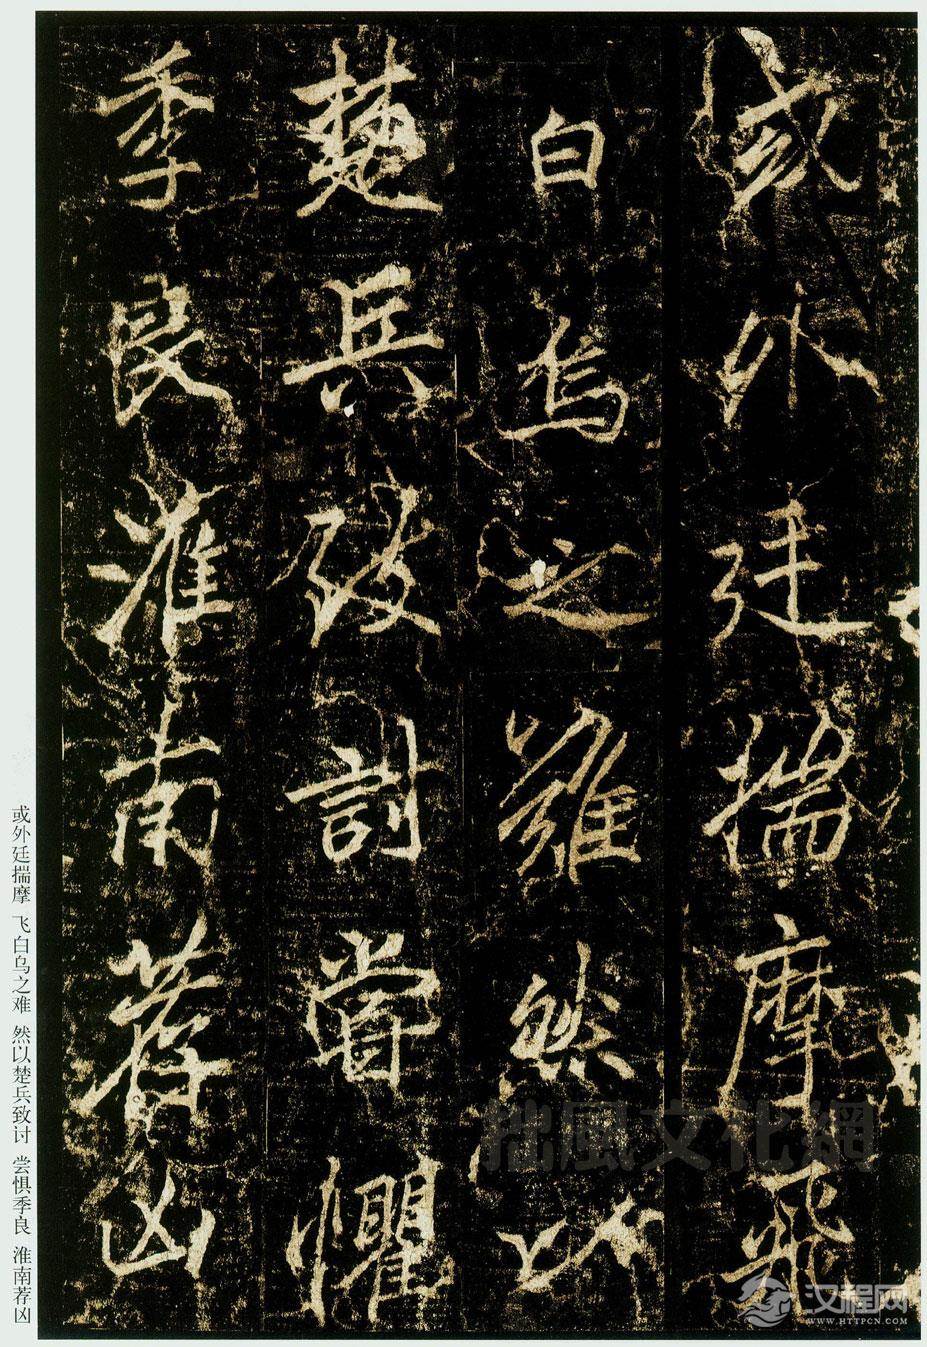 或外廷揣摩飛
白烏之難然以
楚兵致討嘗懼
季良淮南荐凶
或外廷揣摩 飞白乌之难 然以楚兵致讨 尝惧季良 淮南荐凶
拙風文化網
汉程网
WWW.HTTPCN.COM